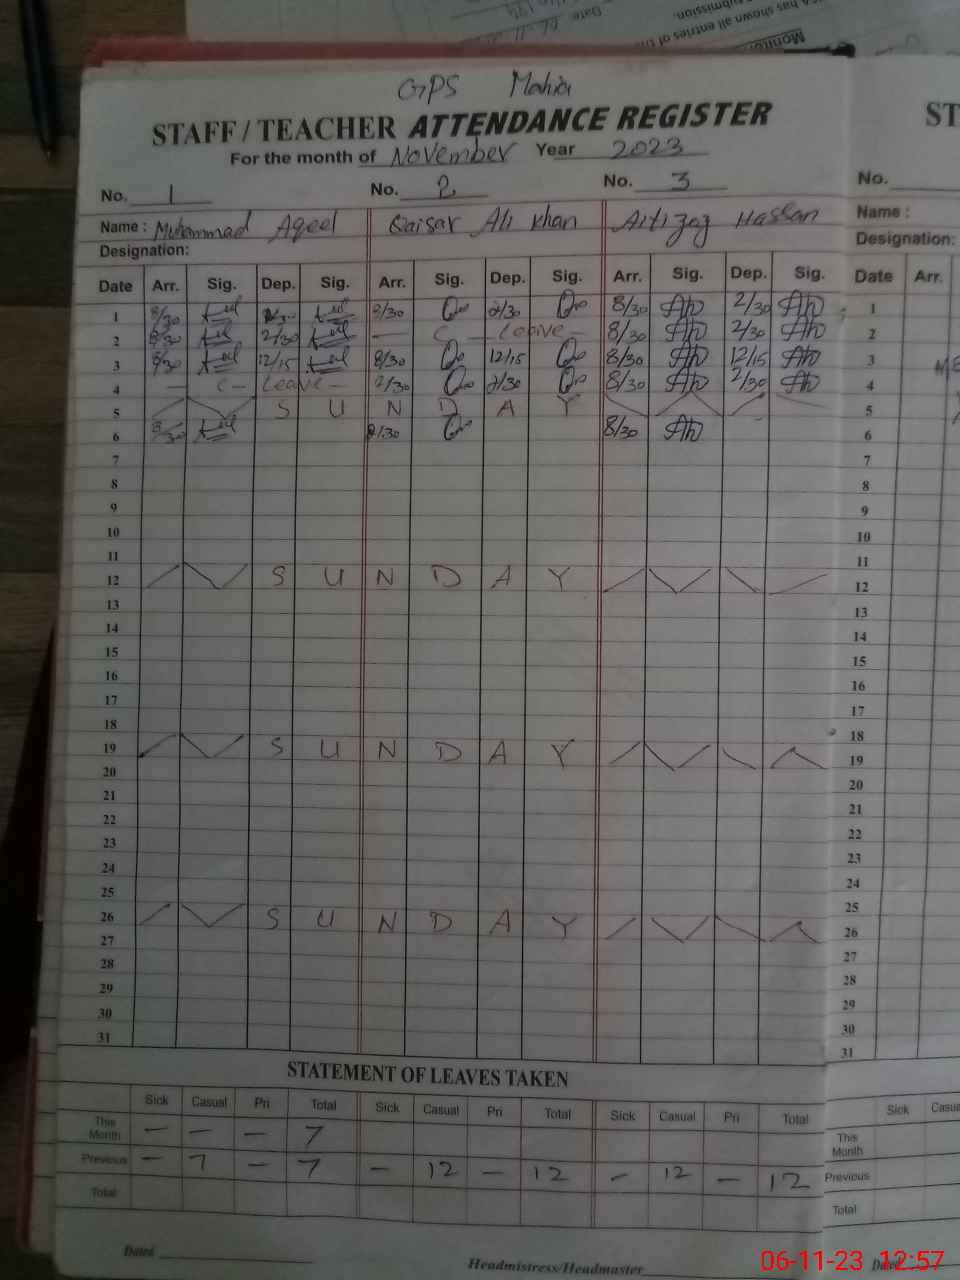 GPS Mahia
STAFF / TEACHER ATTENDANCE REGISTER
For the month of November Year 2023
No. 1 No. 2 No. 3 No.
Name : Muhammad Aqeel Qaisar Ali Khan Aitizaz Hassan Name :
Designation: Designation:
Date Arr. Sig. Dep. Sig. Arr. Sig. Dep. Sig. Arr. Sig. Dep. Sig. Date Arr.
1 8/30 8/30 2/30 8/30 2/30 1
2 8/30 2/30 - C - Leave - 8/30 2/30 2
3 8/30 12/15 8/30 12/15 8/30 12/15 3
4 - C - Leave - 2/30 8/30 2/30 4
5 S U N D A Y 5
6 8/30 8/30 8/30 6
7 7
8 8
9 9
10 10
11 11
12 S U N D A Y 12
13 13
14 14
15 15
16 16
17 17
18 18
19 S U N D A Y 19
20 20
21 21
22 22
23 23
24 24
25 25
26 S U N D A Y 26
27 27
28 28
29 29
30 30
31 31
STATEMENT OF LEAVES TAKEN
Sick Casual Pri Total Sick Casual Pri Total Sick Casual Pri Total Sick
This Month - - - 7 This Month
Previous - 7 - 7 - 12 - 12 - 12 - 12 Previous
Total Total
Dated
Headmistress/Headmaster
06-11-23 12:57